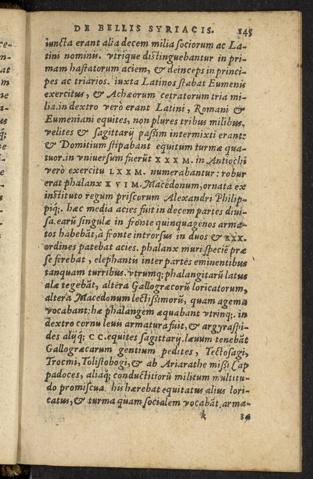 DE BELLIS SYRIACIS. 145
iuncta erant alia decem milia sociorum ac La-
tini nominis. vtrique distinguebantur in pri-
mam hastatorum aciem, & deinceps in princi-
pes ac triarios. iuxta Latinos stabat Eumenis
exercitus, & Achæorum cetratorum tria mi-
lia.in dextro verò erant Latini, Romani &
Eumeniani equites, non plures tribus milibus,
velites & sagittarij passim intermixti erant:
& Domitium stipabant equitum turmæ qua-
tuor.in vniuersum fuerūt XXX M. in Antiochi
verò exercitu LXX M. numerabantur: robur
erat phalanx XVI M. Macedonum, ornata ex
instituto regum priscorum Alexandri Philip-
piq;. hæc media acies fuit in decem partes diui-
sa.earū singulæ in fronte quinquagenos arma-
tos habebāt, à fronte introrsus in duos & XXX.
ordines patebat acies. phalanx muri speciē præ
se ferebat, elephanti inter partes eminentibus
tanquam turribus. vtrumq; phalangitarū latus
alæ tegebāt, altera Gallogræcorū loricatorum,
altera Macedonum lectissimorū, quam agema
vocabant: hæ phalangem æquabant vtrinq;. in
dextro cornu leuis armatura fuit, & argyraspi-
des alijq; CC.equites sagittarij. læuum tenebāt
Gallogræcarum gentium pedites, Tectosagi,
Trocmi, Tolistobogi, & ab Ariarathe missi Cap
padoces, aliaq; conductitiorū militum multitu-
do promiscua. his hærebat equitatus alius lori-
catus, & turma quam socialem vocabāt, arma-
k